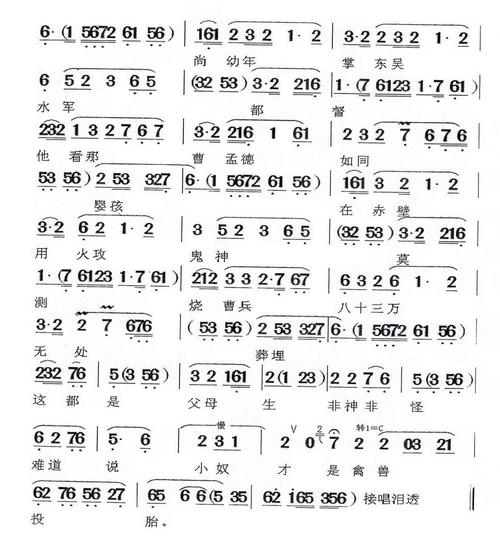 6·(1 5672 61 56) | 161 2 3 2 1·2 | 3·2 2 3 2 1·2 |
尚幼年 掌东吴
6 5 2 3 6 5 | (32 53) 3·2 216 | 1·(7 6123 1·7 61) |
水军 都 督
232 1 3 2 7 6 7 | 3·2 216 1 61 | 1 3 2 7 6 7 6 |
他看那 曹孟德 如同
53 56) 2 53 327 | 6·(1 5672 61 56) | 161 3 2 1·2 |
婴孩 在赤壁
3·2 6 2 1·2 | 3 5 2 3 6 5 | (32 53) 3·2 216 |
用火攻 鬼神 莫
1·(7 6123 1·7 61) | 212 3 3 2·7 67 | 6 3 2 6 1·2 |
测 烧曹兵 八十三万
3·2 2 7 676 | (53 56) 2 53 327 | 6·(1 5672 61 56) |
无处 葬埋
232 76 5(3 56) | 3 2 161 2(1 23) | 2 2 7 6 5(3 56) |
这都是 父母生 非神非怪
慢 V 转1=C
6 2 76 5·6 | 2 3 1 | 2 0 7 2 2 03 21 |
难道说 小奴 才是禽兽
62 76 56 27 | 65 6 6(5 35 | 62 i65 356) 接唱泪透 ‖
投 胎。